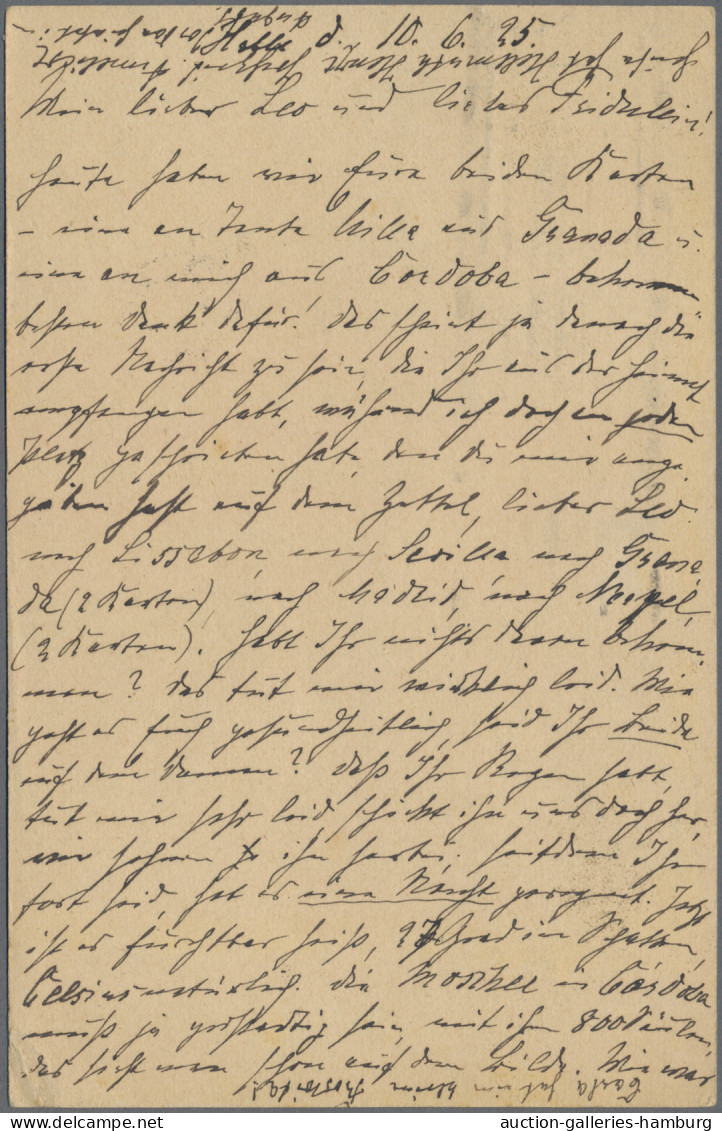 Halle d. 10. 6. 25.
Mein lieber Leo und liebes Fridelein!
Heute haben wir Eure beiden Karten
– eine an Tante Milla aus Granada u.
eine an mich aus Cordoba – bekommen
besten Dank dafür! Das scheint ja danach die
erste Nachricht zu sein, die Ihr aus der Heimat
empfangen habt, während ich doch an jeden
Platz geschrieben habe, den du mir ange-
geben hast auf dem Zettel, lieber Leo.
nach Lissabon nach Sevilla nach Grana
da (2 Karten), nach Madrid, nach
(2 Karten). Habt Ihr nichts davon bekom-
men? Das tut mir wirklich leid. Wie
geht es Euch gesundheitlich, seid Ihr beide
auf dem Damm? Daß Ihr Regen habt,
tut mir sehr leid schickt ihn uns doch her,
wir sehnen ihn herbei. Seitdem Ihr
fort seid, hat es eine Nacht geregnet. Jetzt
ist es furchtbar heiß, 27 Grad im Schatten,
Celsius natürlich. Die Moschee in Córdoba
muß ja großartig sein, mit ihren 800 Säulen,
das sieht man schon auf dem Bilde. Wie war
auction-galleries-hamburg